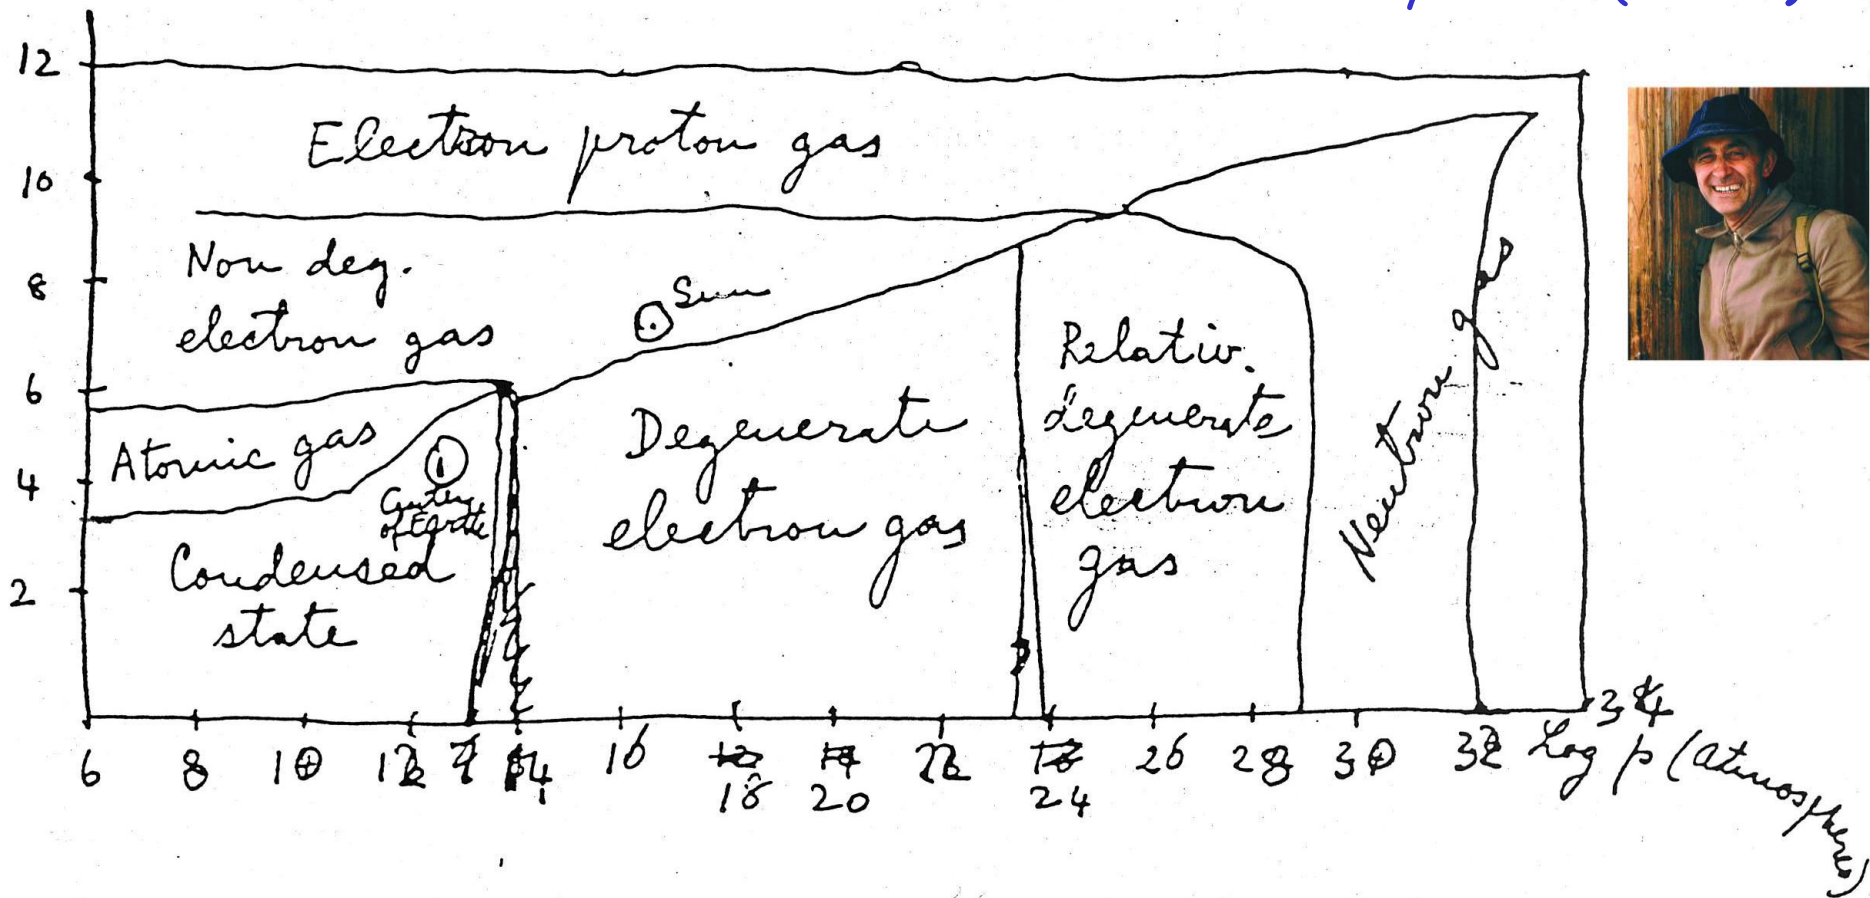 12
Electron proton gas
10
Non deg.
electron gas
8
Sun
6
Atomic gas
4
Center
of Earth
Condensed
state
2
Degenerate
electron gas
Relativ.
degenerate
electron
gas
Neutron gas
6 8 10 12 14 16 18 20 22 24 26 28 30 32 34
Log p (atmospheres)